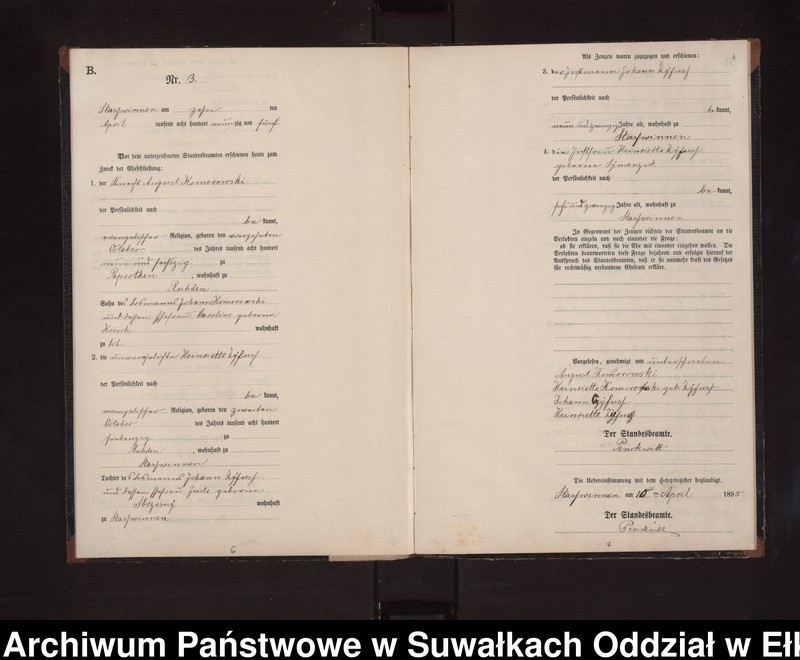 B.
Nr. 3.
Stasswinnen am zehn ten
April tausend acht hundert neunzig und fünf
Vor dem unterzeichneten Standesbeamten erschienen heute zum
Zweck der Eheschließung:
1. der Knecht August Komorowski
der Persönlichkeit nach
be kannt,
evangelischer Religion, geboren den vierzehnten
October des Jahres tausend acht hundert
neun und sechszig zu
Paprodtken, wohnhaft zu
Rohden
Sohn des Losmanns Johann Komorowski
und dessen Ehefrau Caroline geborene
wohnhaft
zu
2. die unverehelichte Henriette Zysuch
der Persönlichkeit nach
be kannt,
evangelischer Religion, geboren den zweiten
October des Jahres tausend acht hundert
siebenzig zu
Rohden, wohnhaft zu
Stasswinnen
Tochter des Losmanns Johann Zysuch
und dessen Ehefrau Julie geborene
wohnhaft
zu Stasswinnen
6
4
Als Zeugen waren zugezogen und erschienen:
3. der Instmann Johann Zysuch
der Persönlichkeit nach
be kannt,
neun und zwanzig Jahre alt, wohnhaft zu
Stasswinnen
4. die Instfrau Henriette Zysuch
geborene
der Persönlichkeit nach
be kannt,
sechs und zwanzig Jahre alt, wohnhaft zu
Stasswinnen
In Gegenwart der Zeugen richtete der Standesbeamte an die
Verlobten einzeln und nach einander die Frage:
ob sie erklären, daß sie die Ehe mit einander eingehen wollen. Die
Verlobten beantworteten diese Frage bejahend und erfolgte hierauf der
Ausspruch des Standesbeamten, daß er sie nunmehr kraft des Gesetzes
für rechtmäßig verbundene Eheleute erkläre.
Vorgelesen, genehmigt und unterschrieben
August Komorowski
Henriette Komorowski geb. Zysuch
Johann Zysuch
Henriette Zysuch
Der Standesbeamte.
Die Uebereinstimmung mit dem Hauptregister beglaubigt.
Stasswinnen am 10 ten April 1895
Der Standesbeamte.
7
Archiwum Państwowe w Suwałkach Oddział w Ełk